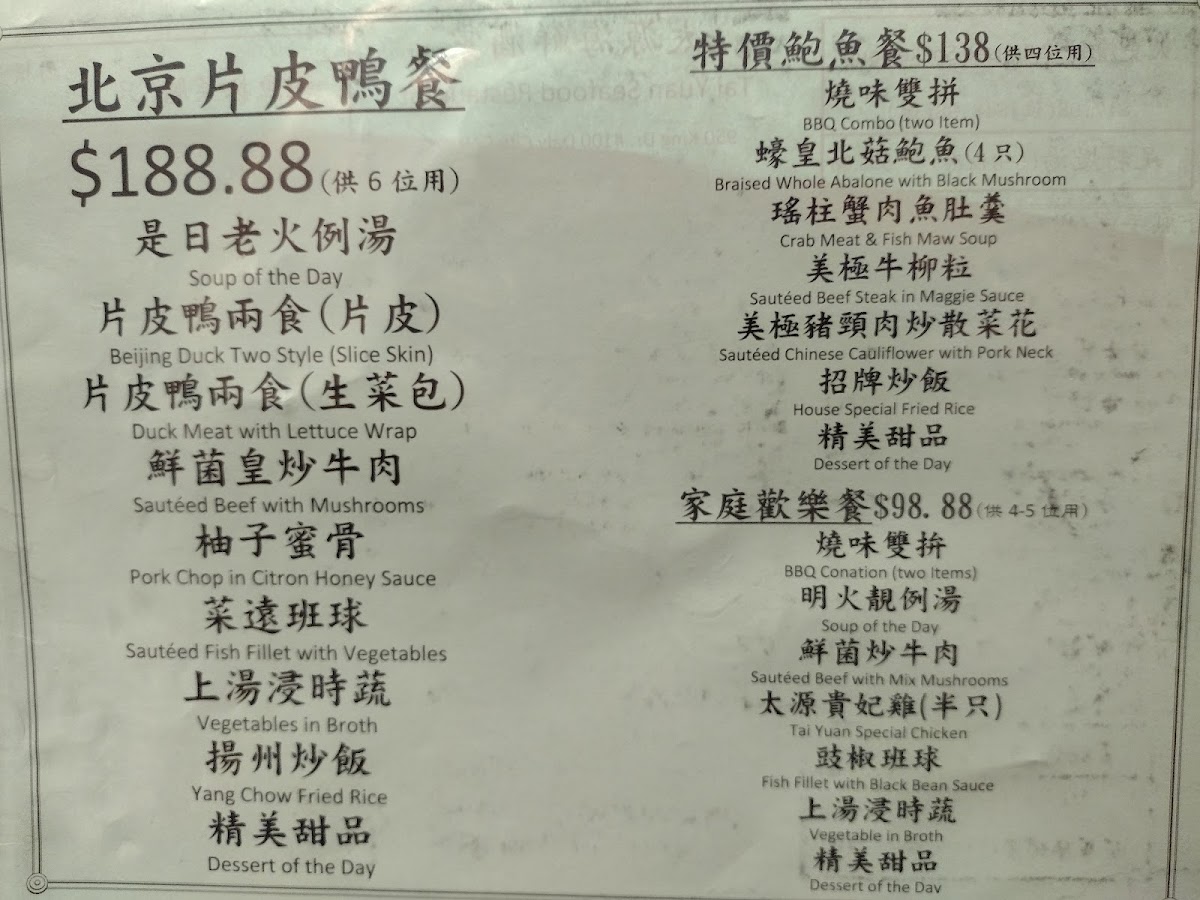 北京片皮鴨餐
$188.88(供 6 位用)
是日老火例湯
Soup of the Day
片皮鴨兩食(片皮)
Beijing Duck Two Style (Slice Skin)
片皮鴨兩食(生菜包)
Duck Meat with Lettuce Wrap
鮮菌皇炒牛肉
Sautéed Beef with Mushrooms
柚子蜜骨
Pork Chop in Citron Honey Sauce
菜遠班球
Sautéed Fish Fillet with Vegetables
上湯浸時蔬
Vegetables in Broth
揚州炒飯
Yang Chow Fried Rice
精美甜品
Dessert of the Day
特價鮑魚餐$138(供四位用)
燒味雙拼
BBQ Combo (two Item)
蠔皇北菇鮑魚(4 只)
Braised Whole Abalone with Black Mushroom
瑤柱蟹肉魚肚羹
Crab Meat & Fish Maw Soup
美極牛柳粒
Sautéed Beef Steak in Maggie Sauce
美極豬頸肉炒散菜花
Sautéed Chinese Cauliflower with Pork Neck
招牌炒飯
House Special Fried Rice
精美甜品
Dessert of the Day
家庭歡樂餐$98.88(供 4-5 位用)
燒味雙拚
BBQ Conation (two Items)
明火靚例湯
Soup of the Day
鮮菌炒牛肉
Sautéed Beef with Mix Mushrooms
太源貴妃雞(半只)
Tai Yuan Special Chicken
豉椒班球
Fish Fillet with Black Bean Sauce
上湯浸時蔬
Vegetable in Broth
精美甜品
Dessert of the Day